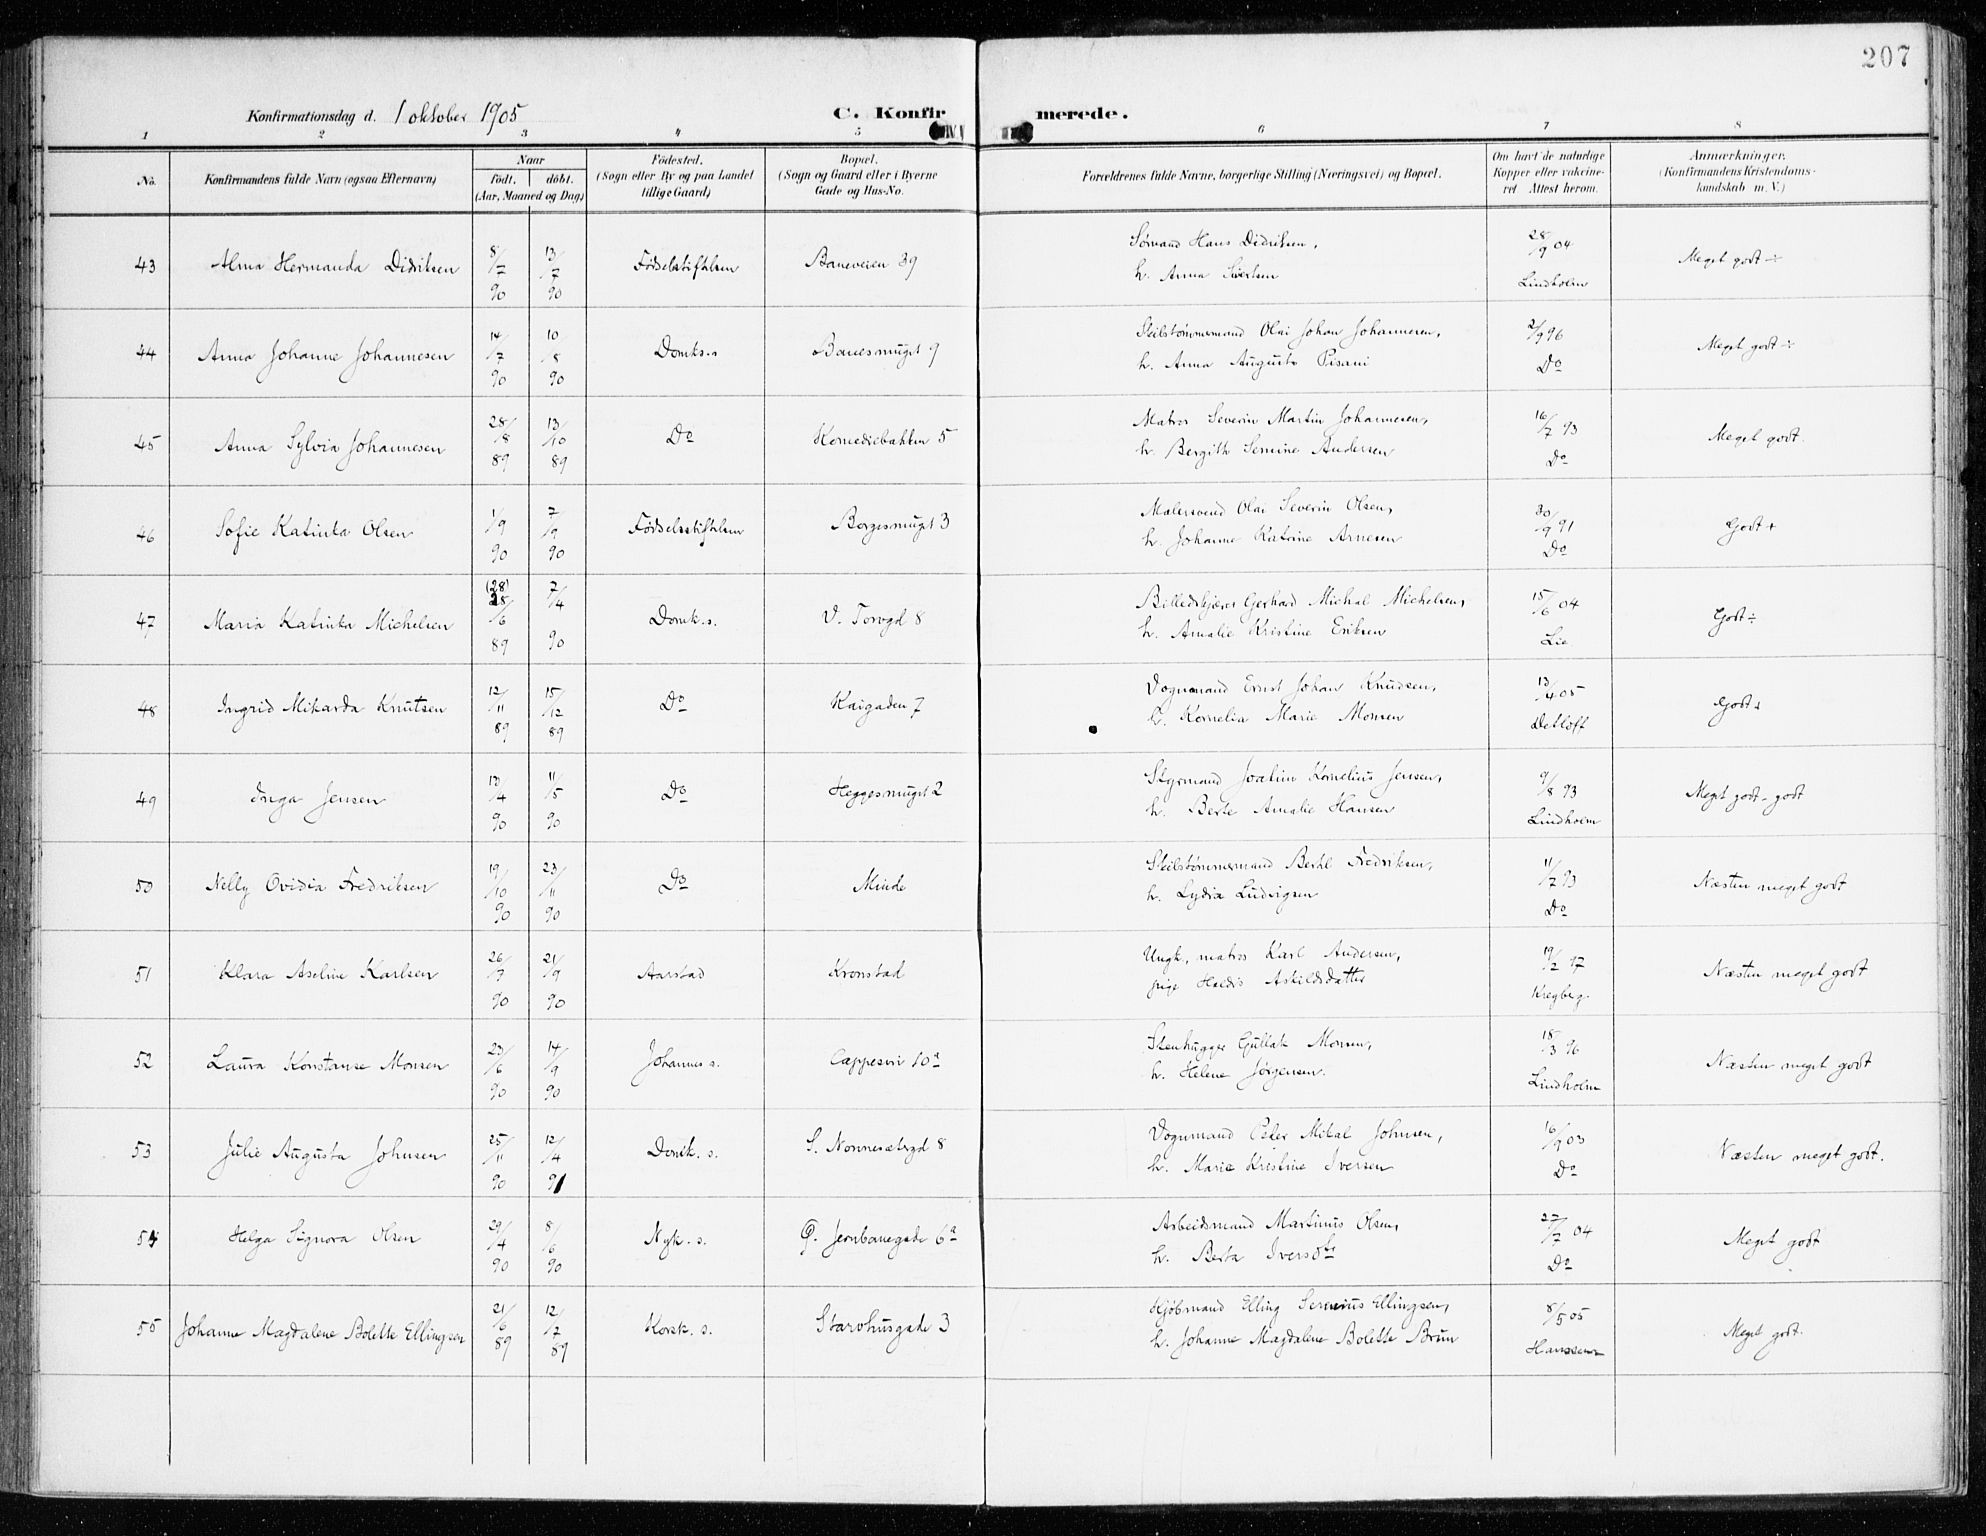 207
Konfirmationsdag d. 1 oktober 1905
C. Konfirmerede.
1 2 3 4 5 6 7 8
No.
Konfirmandens fulde Navn (ogsaa Efternavn)
Naar
født, døbt.
(Aar, Maaned og Dag)
Fødested.
(Sogn eller By og paa Landet
tillige Gaard)
Bopæl.
(Sogn og Gaard eller i Byerne
Gade og Hus-No.
Forældrenes fulde Navne, borgerlige Stilling (Næringsvei) og Bopæl.
Om havt de naturlige
Kopper eller vakcine-
ret Attest herom.
Anmærkninger.
(Konfirmandens Kristendoms-
kundskab m. V.)
43 Alma Hermanda Didriksen 8/7 90 13/7 90 Fødselsstiftelsen Baneveien 39
Sømand Hans Didriksen,
h. Anna Sivertsen
28/9 04
Lindholm
Meget godt ÷
44 Anna Johanne Johannesen 14/7 90 10/8 90 Domk.s Banesmuget 9
Seilstømmermand Olai Johan Johannesen,
h. Anna Augusta Pisani
2/9 96
Do
Meget godt ÷
45 Anna Sylvia Johannesen 28/8 89 13/10 89 Do Komediebakken 5
Matros Severin Martin Johannesen,
h. Bergith Semine Andersen
16/7 93
Do
Meget godt.
46 Sofie Katinka Olsen 1/9 90 7/9 90 Fødselsstiftelsen Borgesmuget 3
Malersvend Olai Severin Olsen,
h. Johanne Katrine Arnesen
30/9 91
Do
Godt +
47 Maria Katinka Michelsen (28) 28/6 89 7/4 90 Domk.s. V. Torvgd 8
Billedskjærer Gerhard Michal Michelsen,
h. Amalie Kristine Eriksen
15/6 04
Lie
Godt ÷
48 Ingrid Mikarda Knutsen 12/11 89 15/12 89 Do Kaigaden 7
Vognmand Ernst Johan Knudsen,
h. Kornelia Marie Monsen
13/4 05
Detloff
Godt +
49 Inga Jensen 13/4 90 11/5 90 Do Heggesmuget 2
Styrmand Joakim Kornelius Jensen,
h. Berte Amalie Hansen
9/8 93
Lindholm
Meget godt - godt
50 Nelly Ovidia Fredriksen 19/10 90 23/11 90 Do Minde
Seilstømmermand Bertel Fredriksen,
h. Lydia Ludvigsen
11/7 93
Do
Næsten meget godt
51 Klara Aseline Karlsen 26/7 90 21/9 90 Aarstad Kronstad
Ungk., matros Karl Andersen,
pige Heldis Askildsdatter
19/2 97
Kregberg
Næsten meget godt
52 Laura Konstanse Monsen 23/6 90 14/9 90 Johannes s. Cappesvei 10a
Stenhugger Gullak Monsen,
h. Helene Jørgensen.
18/3 96
Lindholm
Næsten meget godt
53 Julie Augusta Johnsen 25/11 90 12/4 91 Domk. s. S. Nonnesætergd 8
Vognmand Peter Mikal Johnsen,
h. Marie Kristine Iversen
16/9 03
Do
Næsten meget godt.
54 Helga Signora Olsen 29/4 90 8/6 90 Nyk. s. G. Jernbanegade 6a
Arbeidsmand Martinus Olsen,
h. Berta Iversdtr
27/7 04
Do
Meget godt
55 Johanne Magdalene Bolette Ellingsen 21/6 89 12/7 89 Korsk. s. Starvhusgade 3
Kjøbmand Elling Serenius Ellingsen,
h. Johanne Magdalene Bolette Brun
8/5 05
Hanssen
Meget godt.